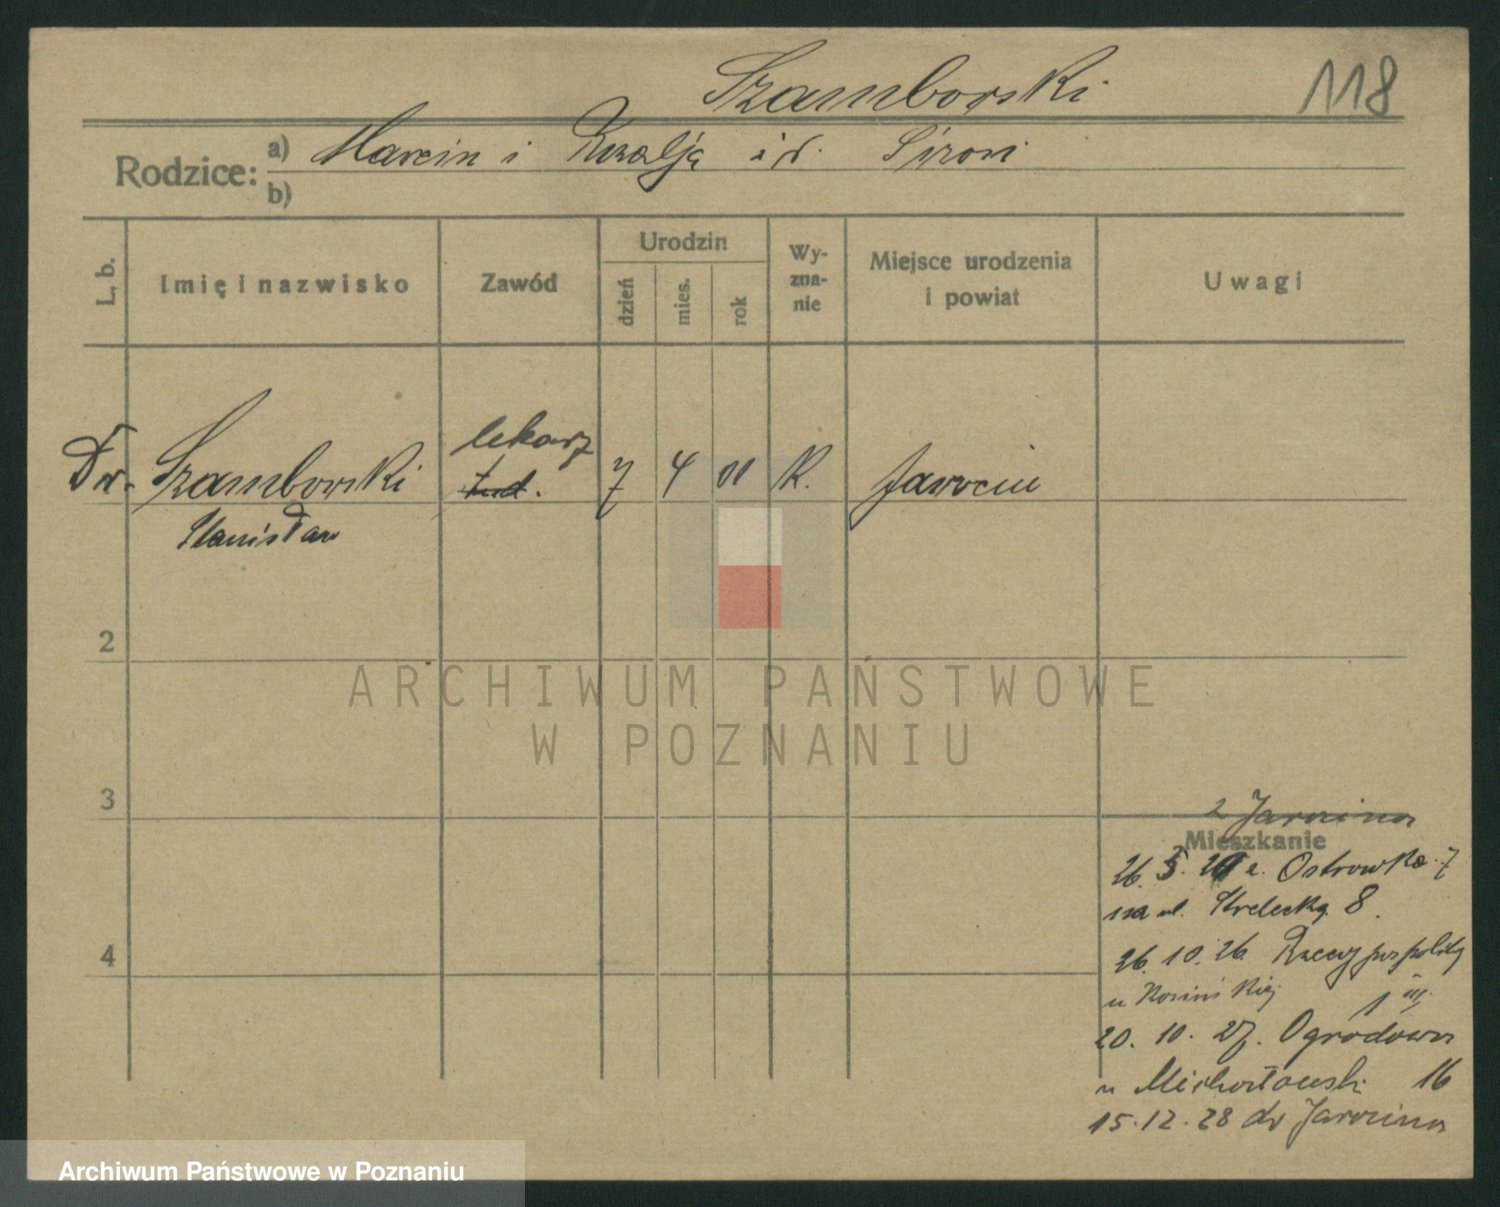 Szamborski 118
Rodzice: a) Marcin i Rozalja z d.
b)
L. b.
Imię i nazwisko
Zawód
Urodzin
dzień
mies.
rok
Wy-
zna-
nie
Miejsce urodzenia
i powiat
Uwagi
Dr. Szamborski
Stanisław
lekarz
stud.
7 4 01 K. Jarocin
2
3
4
z Jarocina
Mieszkanie
26. 5. z. Ostrowka 7
na ul. Strzelecką 8.
26. 10. 26 Rzeczypospolitej
u 1 III
20. 10. 27. Ogrodowa
u 16
15. 12. 28 do Jarocina
ARCHIWUM PAŃSTWOWE
W POZNANIU
Archiwum Państwowe w Poznaniu